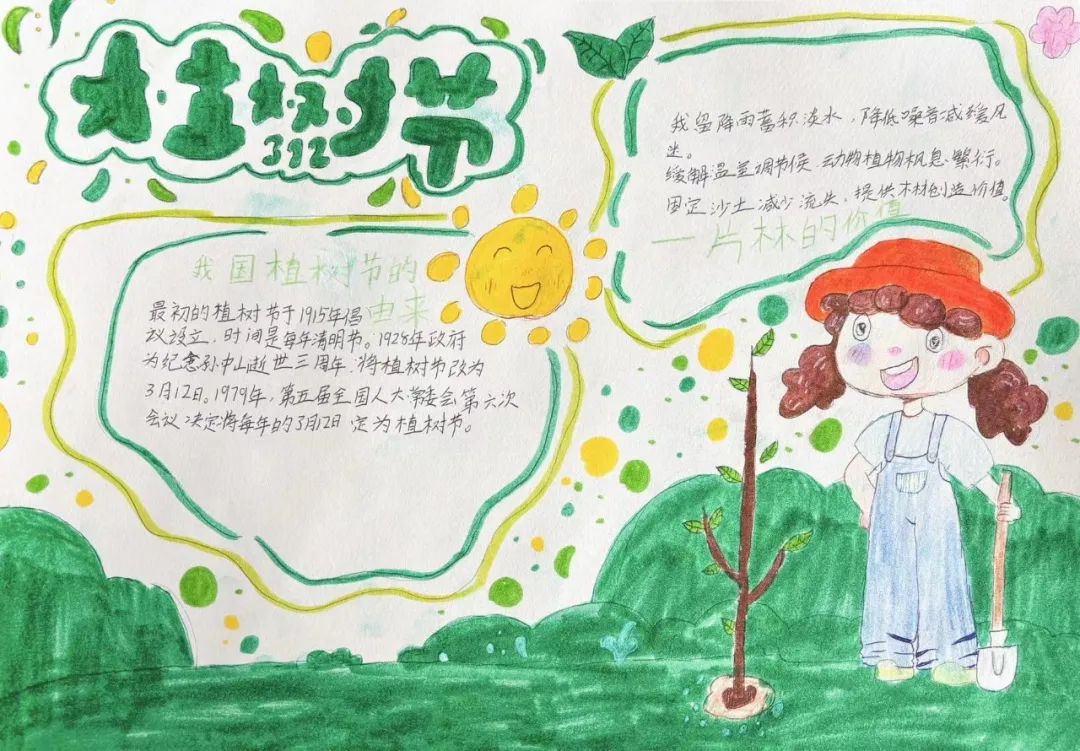 植树节
312
我国植树节的
由来
最初的植树节于1915年倡
议设立，时间是每年清明节。1928年政府
为纪念孙中山逝世三周年，将植树节改为
3月12日。1979年，第五届全国人大常委会第六次
会议决定将每年的3月12日定为植树节。
我留降雨蓄积淡水，降低噪音减缓风
速。
缓解温差调节候、动物植物栖息、繁衍。
固定沙土减少流失，提供木材创造价值。
一片林的价值